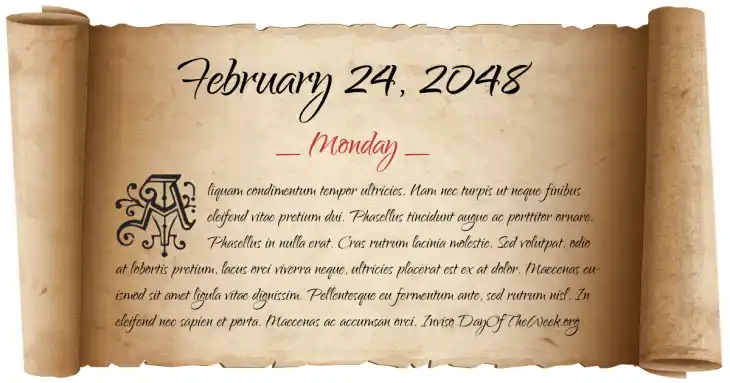 February 24, 2048
_ Monday _
Aliquam condimentum tempor ultricies. Nam nec turpis ut neque finibus
eleifend vitae pretium dui. Phasellus tincidunt augue ac porttitor ornare.
Phasellus in nulla erat. Cras rutrum lacinia molestie. Sed volutpat, odio
at lobortis pretium, lacus orci viverra neque, ultricies placerat est ex at dolor. Maecenas eu-
ismod sit amet ligula vitae dignissim. Pellentesque eu fermentum ante, sed rutrum nisl. In
eleifend nec sapien et porta. Maecenas ac accumsan orci. Inviso DayOfTheWeek.org